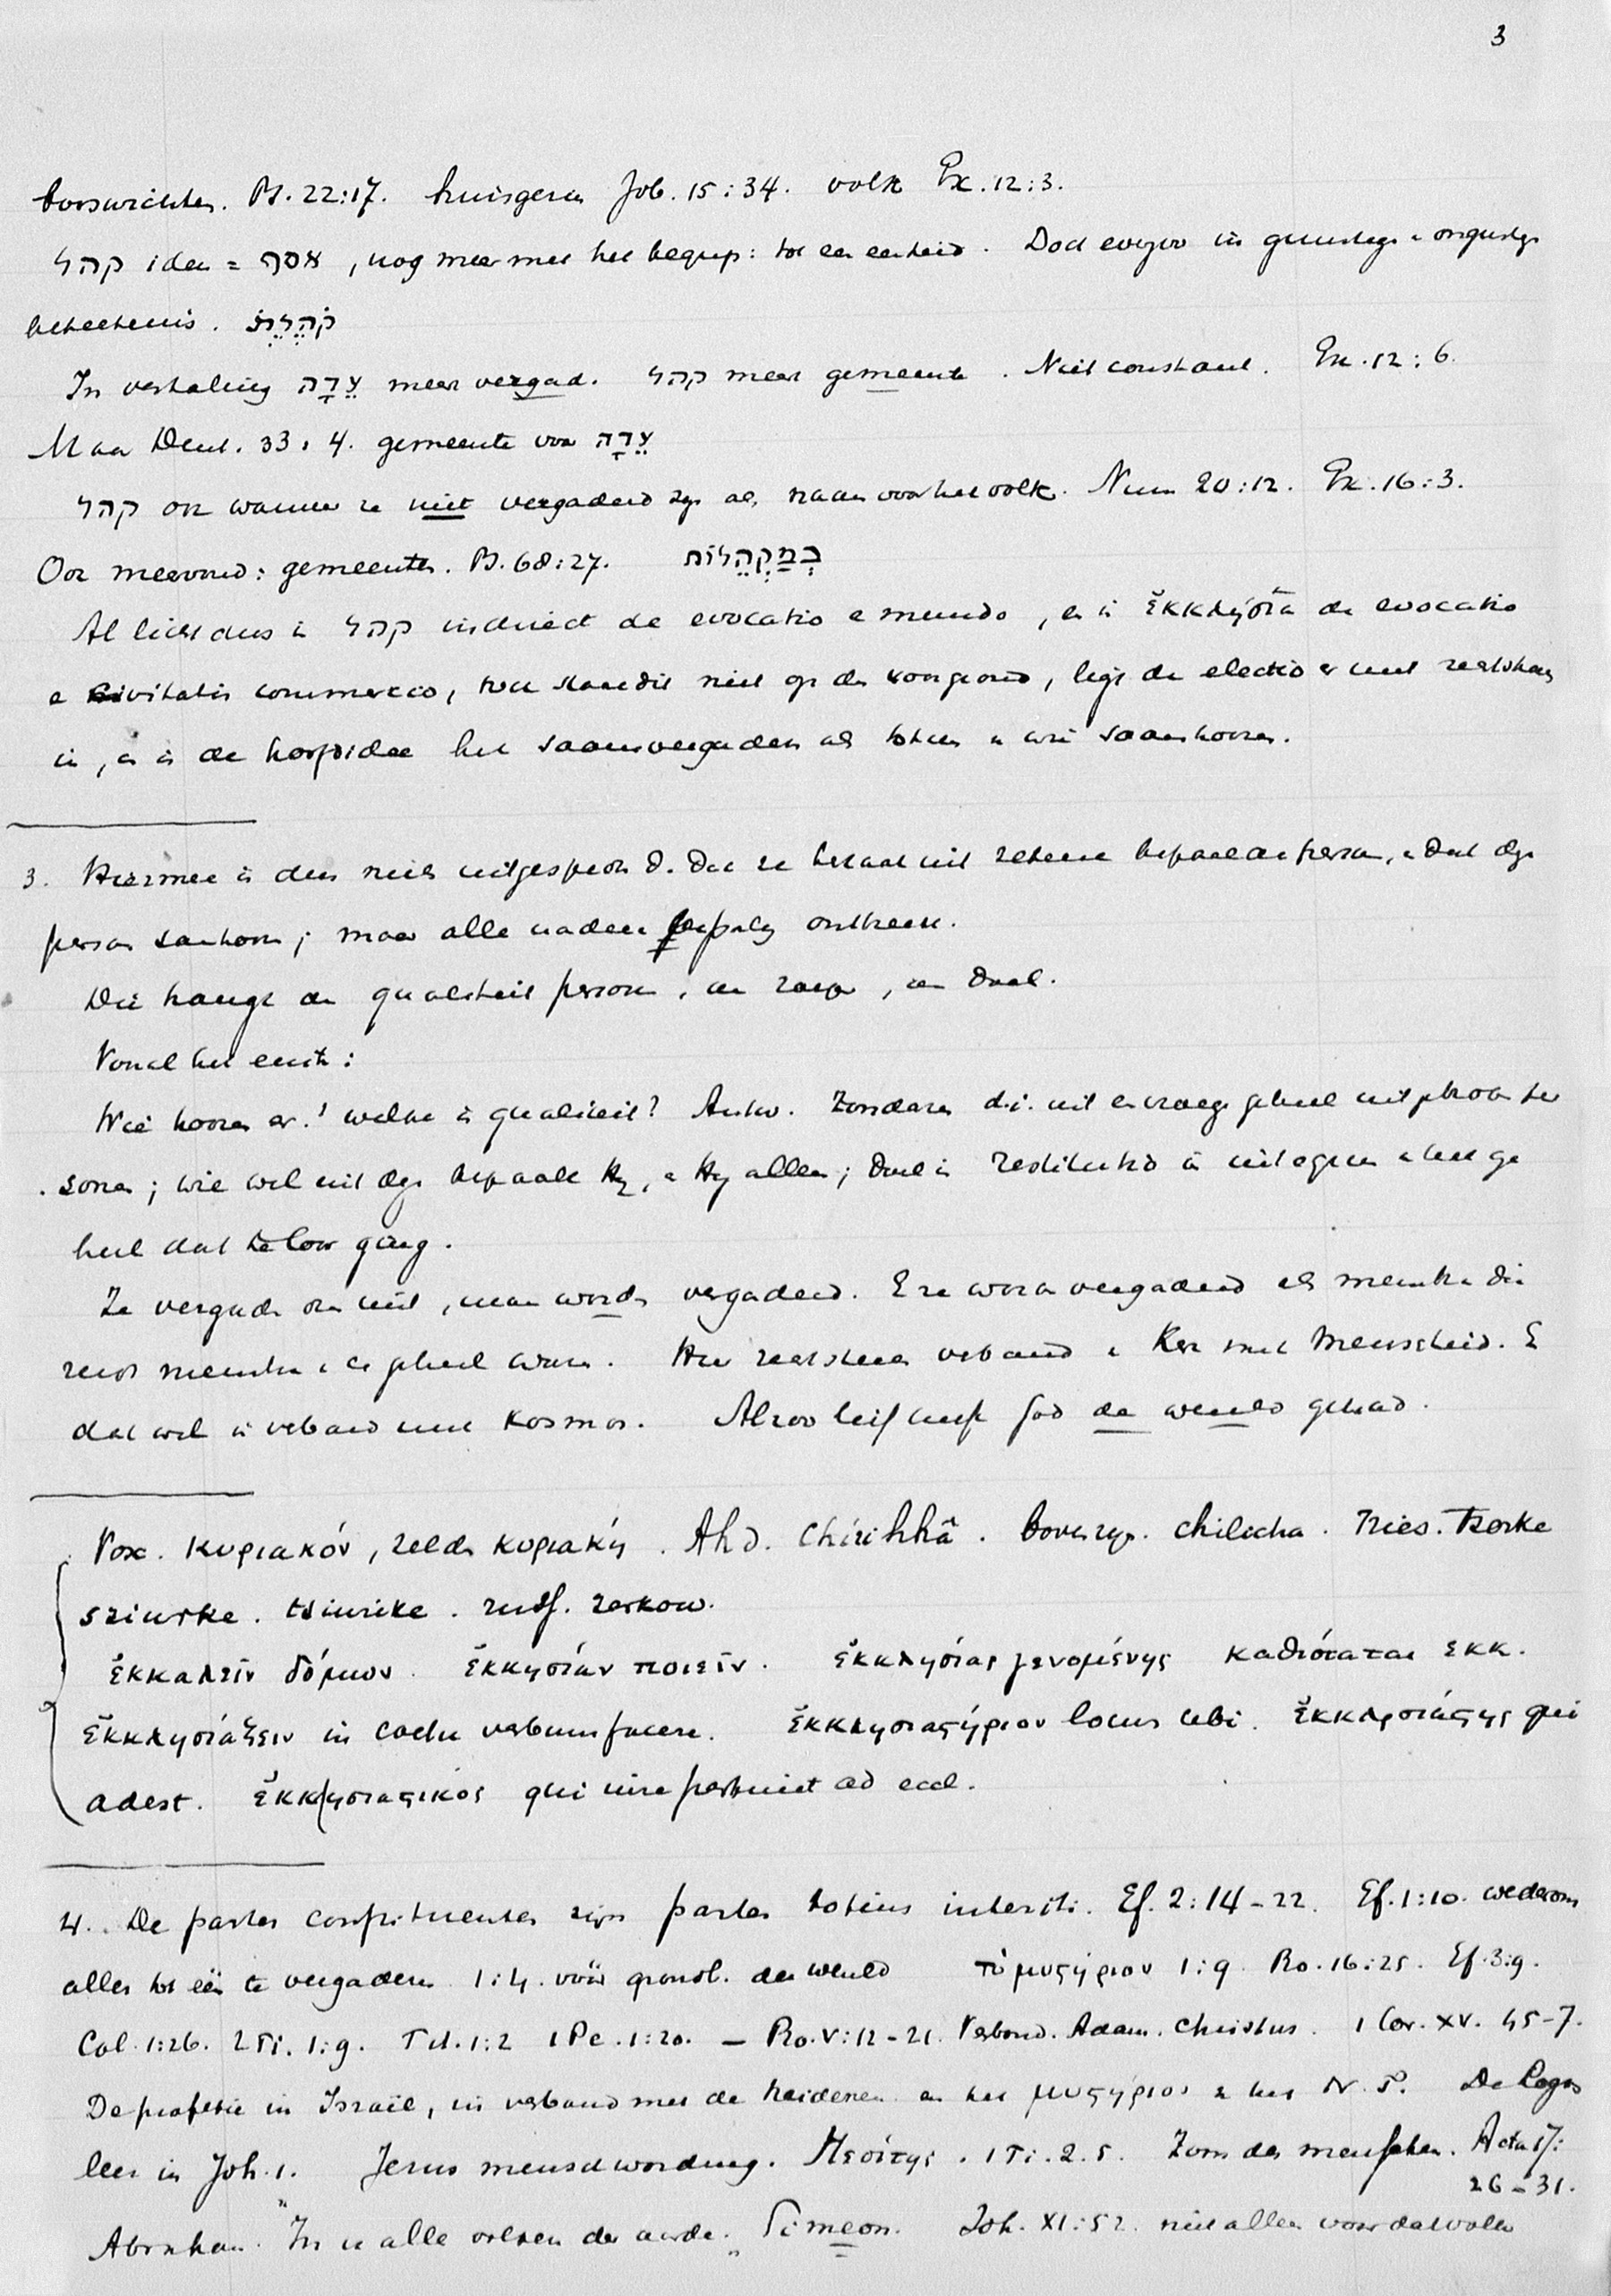 3
booswichten. Ps. 22:17. huisgezin Job. 15:34. volk Ex. 12:3.
קהל idem = אסף, nog meer met het begrip: tot een eenheid. Doch evenzoo in gunstige en ongunstige
beteekenis. קֹהֶלֶת
In vertaling עֵדָה meer vergad. קהל meer gemeente. Niet constant. Ex. 12:6.
Maar Deut. 33:4. gemeente voor עֵדָה
קהל ook wanneer ze niet vergaderd zijn als naam voor het volk. Num 20:12. Ex. 16:3.
Ook meervoud: gemeenten. Ps. 68:27. בְּמַקְהֵלוֹת
Al ligt dus in קהל indirect de evocatio e mundo, en in ἐκκλησία de evocatio
e civitatis commercio, toch staat dit niet op den voorgrond, ligt de electio er niet rechtstreeks
in, en is de hoofdidee het saamvergaderen als totum en wie saamhooren.
3. Hiermee is dus niets uitgesproken d. dat ze bestaat uit zekere bepaalde personen, en dat deze
personen saamhooren; maar alle nadere bepaling ontbreekt.
Die hangt aan qualiteit personen, en , en doel.
Vooral het eerste:
Wie hooren er? welke is qualiteit? Antw. Zondaren d.i. uit een vroeger geheel uitgebroken per
sonen; wie wel uit deze bepaalt Hij, en Hij alleen; doel is restitutio in integrum en het ge
heel dat te loor ging.
Ze vergaderen niet, maar worden vergaderd. En ze worden vergaderd als menschen die
reeds menschen in een geheel waren. Hier rechtstreeks verband en Kerk met menschheid. En
dat wel in verband met Kosmos. Alzoo lief heeft God de wereld gehad.
Vox. κυριακόν, zelden κυριακή. Ahd. Chirihhâ. Chilicha. Fries. Tzerke
sziurke. tsiurike. russ. zerkow.
ἐκκαλεῖν δόμων. ἐκκησίαν ποιεῖν. ἐκκλησίας γενομένης καθίσταται εκκ.
ἐκκλησιάζειν in coetu verbum facere. ἐκκλησιαστήριον locus ubi. ἐκκλησιάστης qui
adest. ἐκκλησιαστικός qui iure pertinet ad eccl.
4. De partes constituentes zijn partes totius interiti. Ef. 2:14-22. Ef. 1:10. wederom
alles tot één te vergaderen 1:4. vóór grondl. der wereld τὸ μυστήριον 1:9. Ro. 16:25. Ef. 3:9.
Col. 1:26. 2 Ti. 1:9. Tit. 1:2 1 Pe. 1:20. – Ro. V:12-21. Verbond. Adam. Christus. 1 Cor. XV. 45-7.
De profetie in Israël, in verband met de heidenen en het μυστήριον in het N. T. De Logos
leer in Joh. 1. Jezus menschwording. Μεσίτης. 1 Ti. 2.5. Zoon des menschen. Acta 17:
26-31.
Abraham. "In u alle volken der aarde." Simeon. Joh. XI:52. niet alleen voor dat volk